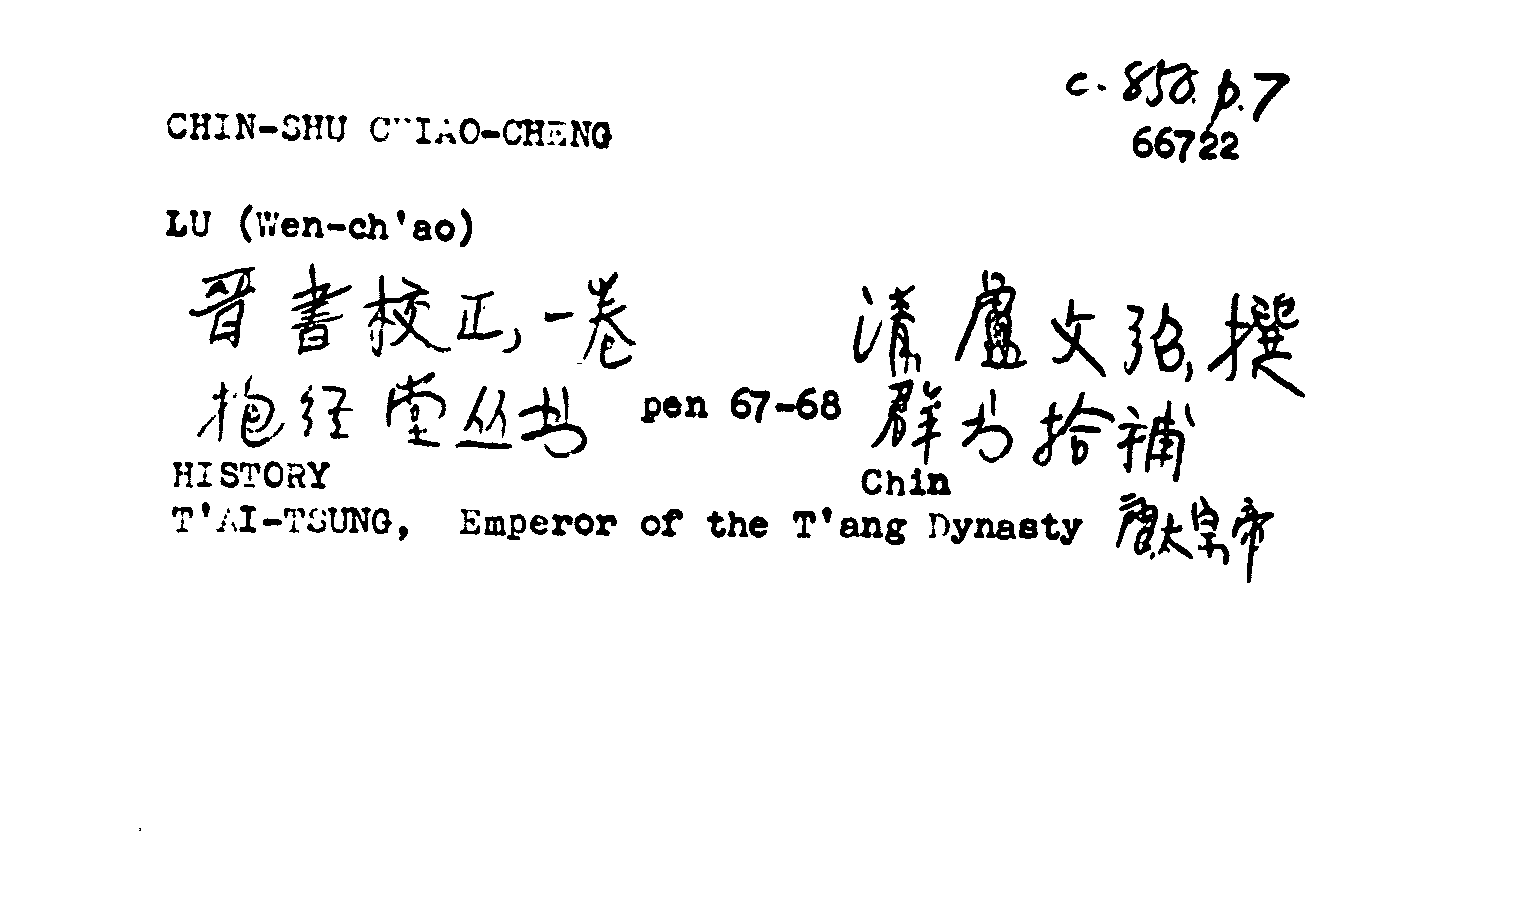 c. 858. p.7
CHIN-SHU CHIAO-CHENG
66722
LU (Wen-ch'ao)
晋書校正,一卷 清盧文弨,撰
抱经堂丛书 pen 67-68 群书拾補
HISTORY Chin
T'AI-TSUNG, Emperor of the T'ang Dynasty 唐太皇帝